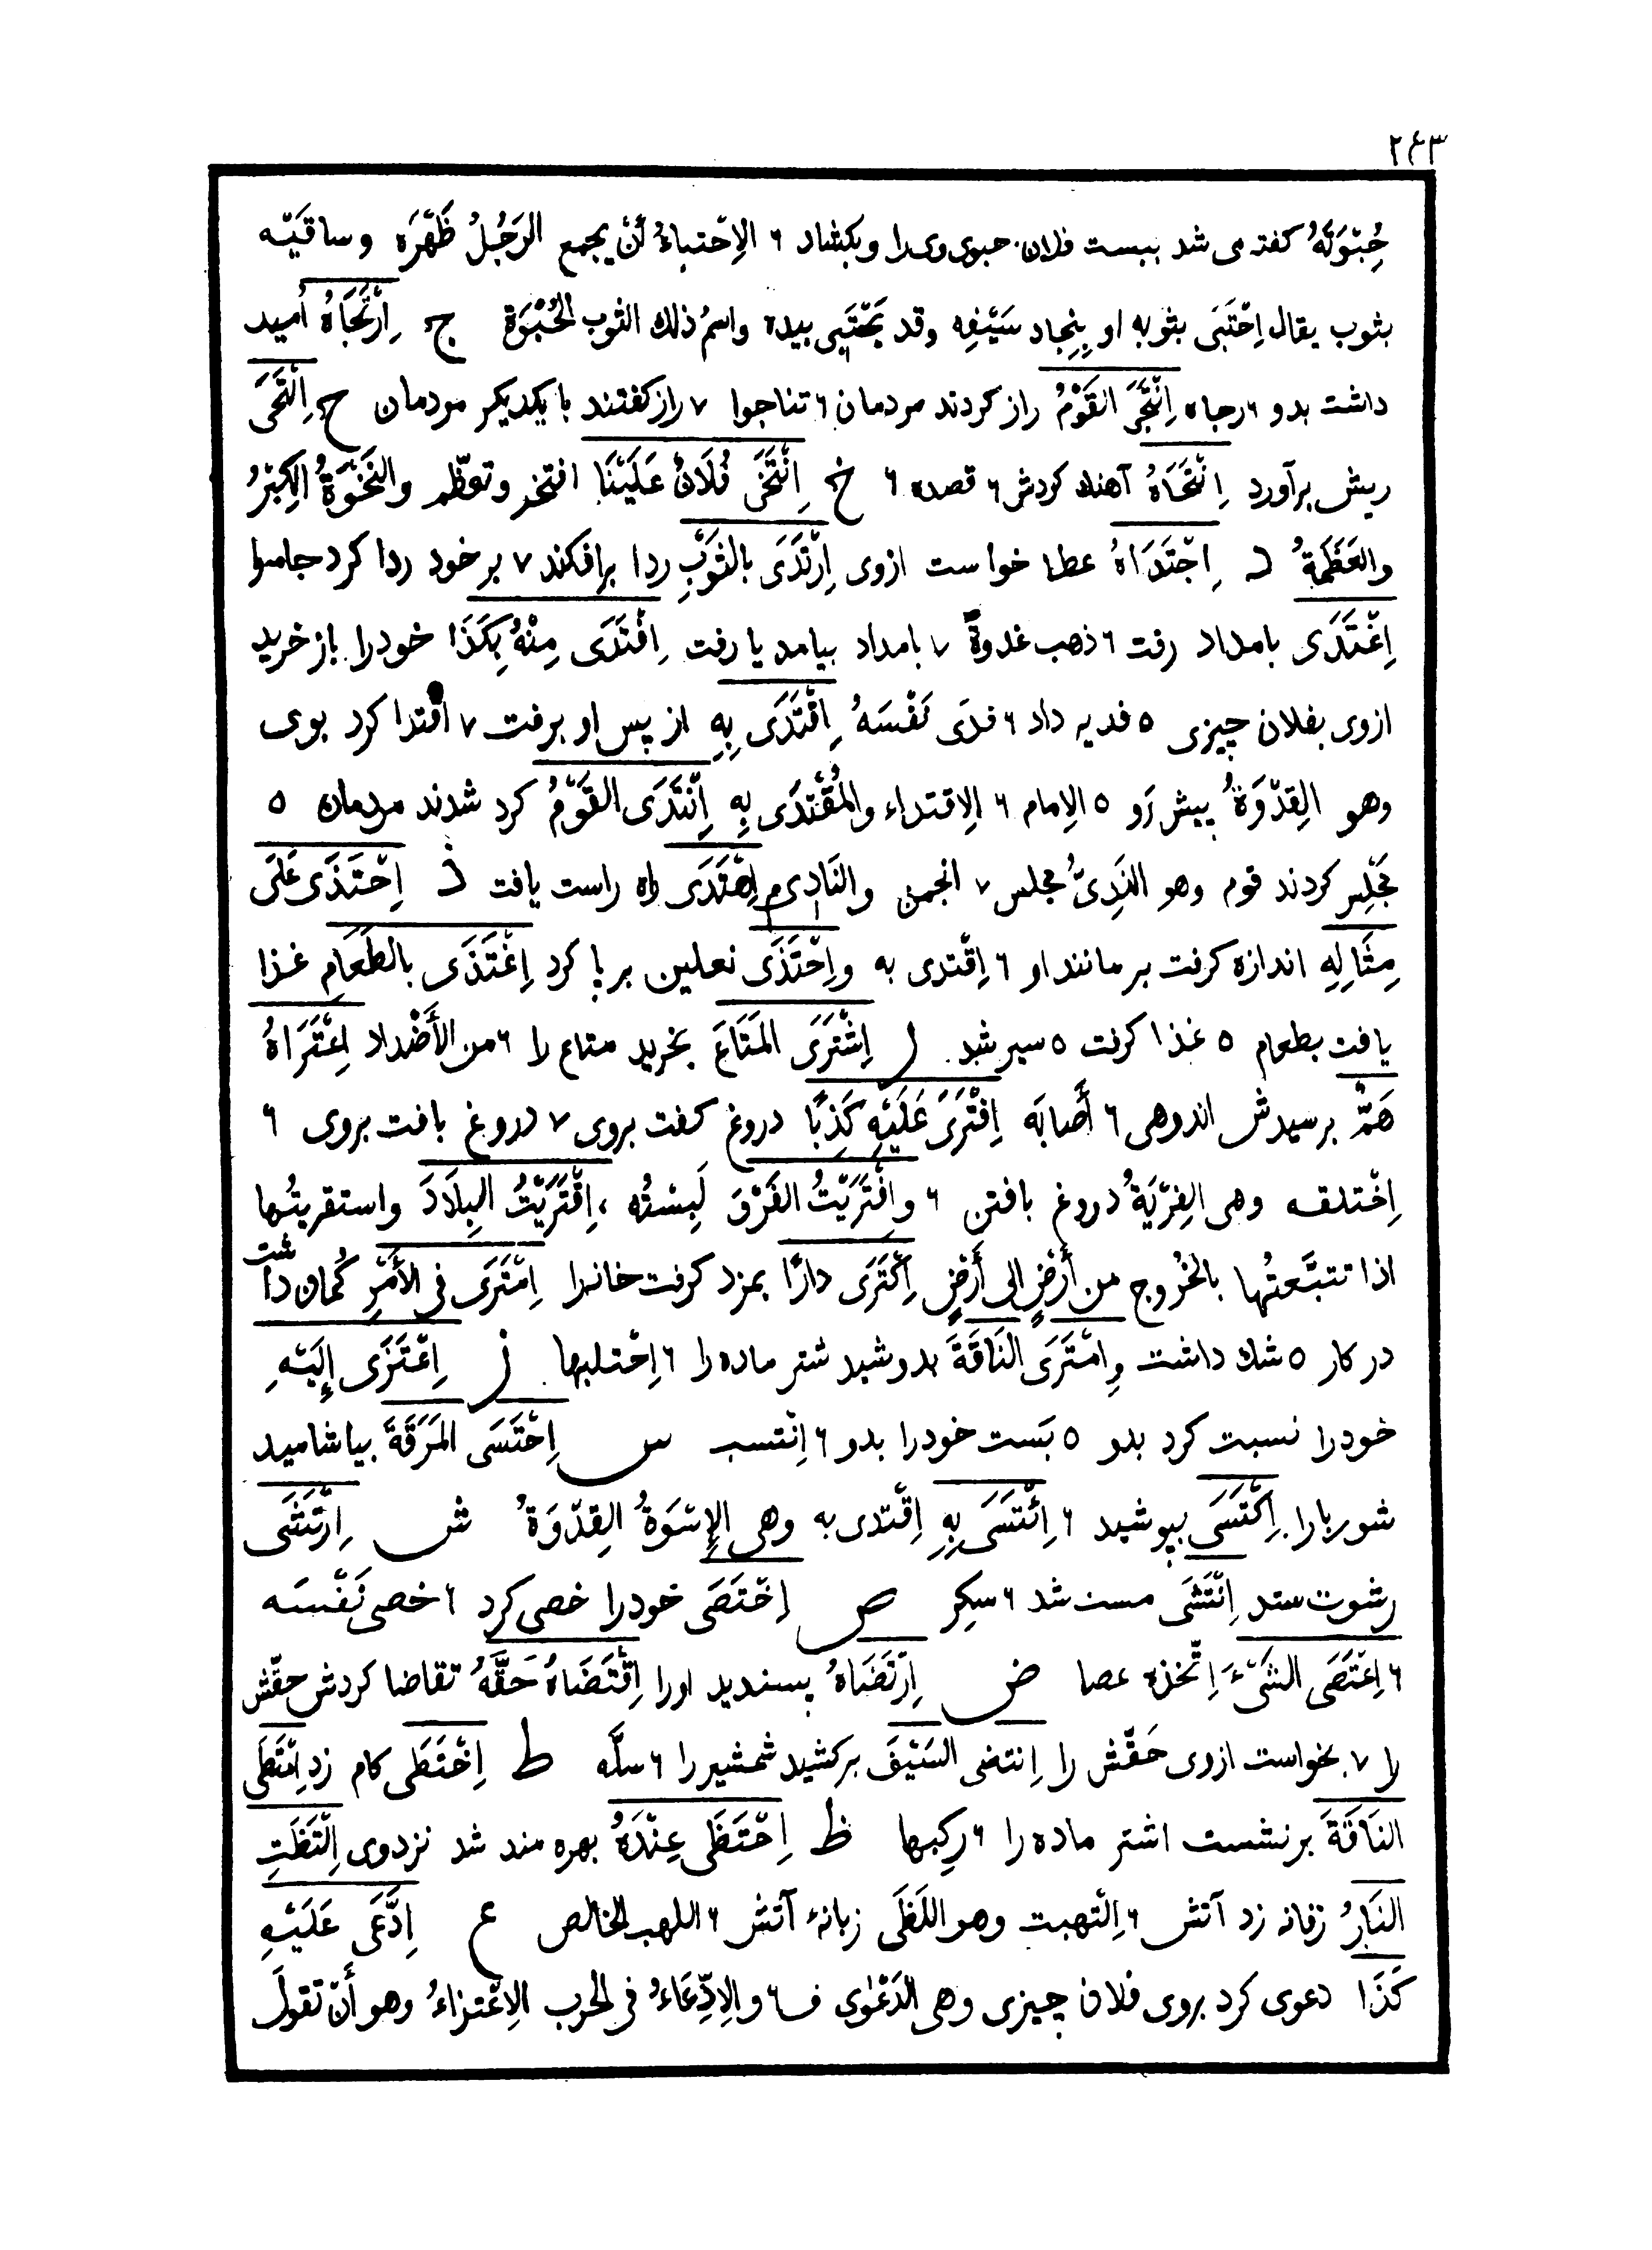 ٢٤٣
حُبْوَتَهُ کفته می شد ببست فلان حبوی وی را و بکشاد ٦ الاِحْتباءُ أَنْ یجمع الرَجُلُ ظَهْرَه وساقَیْه
بثوب یقال اِحْتَبَی بثوبه او بِنِجاد سَیْفِه وقد یَحْتَبِی بیده واسمُ ذلك الثوب الحُبْوَة ج اِرْتَجَاهُ اُمید
داشت بدو ٦ رجاه اِنْتَجَی القَوْمُ راز کردند مردمان ٦ تناجوا ٧ راز کفتند با یکدیکر مردمان ح اِلْتَحَی
ریش برآورد اِنْتَحَاهُ آهنك کردش ٦ قصده ٦ خ اِنْتَخَی فُلَانٌ عَلَیْنَا افتخر وتعظّم والنَخْوَةُ الکِبْرُ
والعَظَمةُ د اِجْتَدَاهُ عطا خواست ازوی اِرْتَدَی بالثَوْبِ ردا برافکند ٧ بر خود ردا کرد جامه‌را
اِغْتَدَی بامداد رفت ٦ ذهب غدوةً ٧ بامداد بیامد یا رفت اِفْتَدَی مِنْهُ بِکَذَا خودرا باز خرید
ازوی بفلان چیزی ٥ فدیه داد ٦ فدَی نَفْسَهُ اِقْتَدَی بِهِ از پس او برفت ٧ اقتدا کرد بوی
وهو القِدْوَةُ پیش رَو ٥ الامام ٦ الاِقتداء والمُقْتَدَی بِهِ اِنْتَدَی القَوْمُ کرد شدند مردمان ٥
مَجْلِس کردند قوم وهو النَدِیُّ مجلس ٧ انجمن والنَادِی م اِهْتَدَی راه راست یافت ذ اِحْتَذَی عَلَی
مِثَالِهِ اندازه کرفت بر مانند او ٦ اِقْتدی به واِحْتَذَی نعلین بر پا کرد اِغْتَذَی بالطَعَامِ غذا
یافت بطعام ٥ غذا کرفت ٥ سیر شد ر اِشْتَرَی المَتَاعَ بخرید متاع را ٦ من الأَضْداد اِعْتَرَاهُ
هَمٌّ برسیدش اندوهی ٦ أَصابَه اِفْتَرَی عَلَیْهِ کَذِبًا دروغ کفت بروی ٧ دروغ بافت بروی ٦
اِخْتلقه وهی الفِرْیَةُ دروغ بافتن ٦ وافْتَرَیْتُ الفَرْوَ لَبِسْتُه ، اِقْتَرَیْتُ البِلَادَ واستقریتُها
اذا تتبَّعتُها بالخُرُوج من أَرْضٍ الی أَرْضٍ اِکْتَرَی دارًا بمزد کرفت خانه‌را اِمْتَرَی فی الأَمْرِ کُمان داشت
در کار ٥ شك داشت وامْتَرَی النَاقَةَ بدوشید شتر ماده را ٦ اِحْتلبها ز اِعْتَزَی اِلَیْهِ
خودرا نسبت کرد بدو ٥ بَست خودرا بدو ٦ اِنْتسب س اِحْتَسَی المَرَقَةَ بیاشامید
شوربا را اِکْتَسَی بپوشید ٦ اِئْتَسَی بِهِ اِقْتدی به وهی الإِسْوَةُ القِدْوَةُ ش اِرْتَشَی
رشوت ستد اِنْتَشَی مست شد ٦ سکِر ص اِخْتَصَی خودرا خصی کرد ٦ خصی نَفْسَه
٦ اِعْتَصَی الشَیْءَ اِتَّخذه عصا ض اِرْتَضَاهُ پسندید اورا اِقْتَضَاهُ حَقَّهُ تقاضا کردش حقّش
را ٧ بخواست ازوی حَقّش را اِنتضی السَیْفَ برکشید شمشیر را ٦ سلَّه ط اِخْتَطَی کام زد اِمْتَطَی
النَاقَةَ برنشست اشتر ماده را ٦ رکِبها ظ اِحْتَظَی عِنْدَهُ بهره مند شد نزد وی اِلْتَظَتِ
النَارُ زفانه زد آتش ٦ اِلْتهبت وهو اللَظَی زبانهٔ آتش ٦ اللهب الخالص ع اِدَّعَی عَلَیْهِ
کَذَا دعوی کرد بروی فلان چیزی وهی الدَعْوٰی ف ٦ والاِدِّعَاءُ فی الحرب الاِعْتزاءُ وهو أَنْ تقولَ